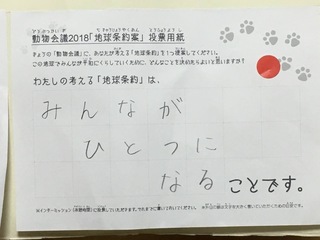 動物会議2018「地球条約案」投票用紙
きょうの「動物会議」に、あなたが考える「地球条約」を1つ提案してください。
この地球でみんなが平和にくらしていくために、どんなことを決めたらよいと思いますか?
わたしの考える「地球条約」は、
みんなが
ひとつに
なる ことです。